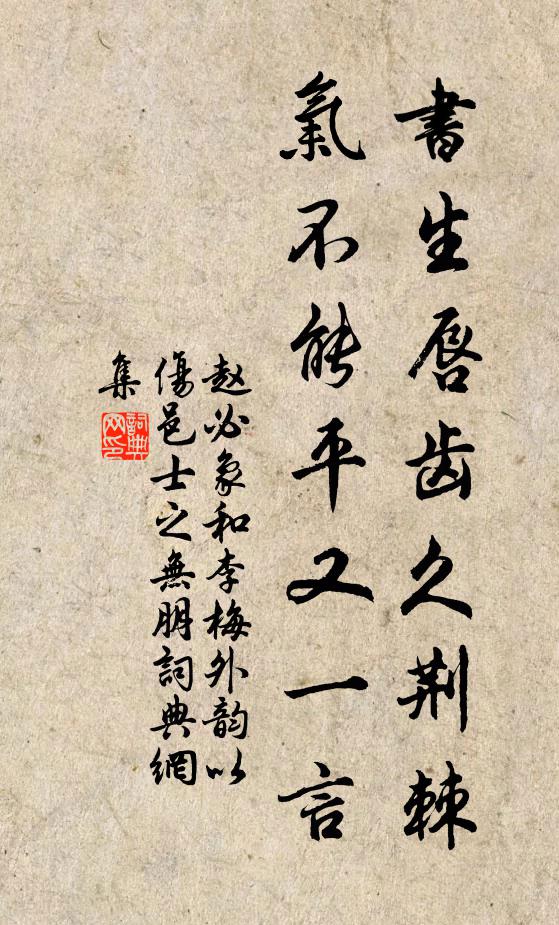 書生唇齿久荆棘
氣不能平又一言
赵必象和李梅外韵以
傷邑士之無朋詞典網
集
詞典网印